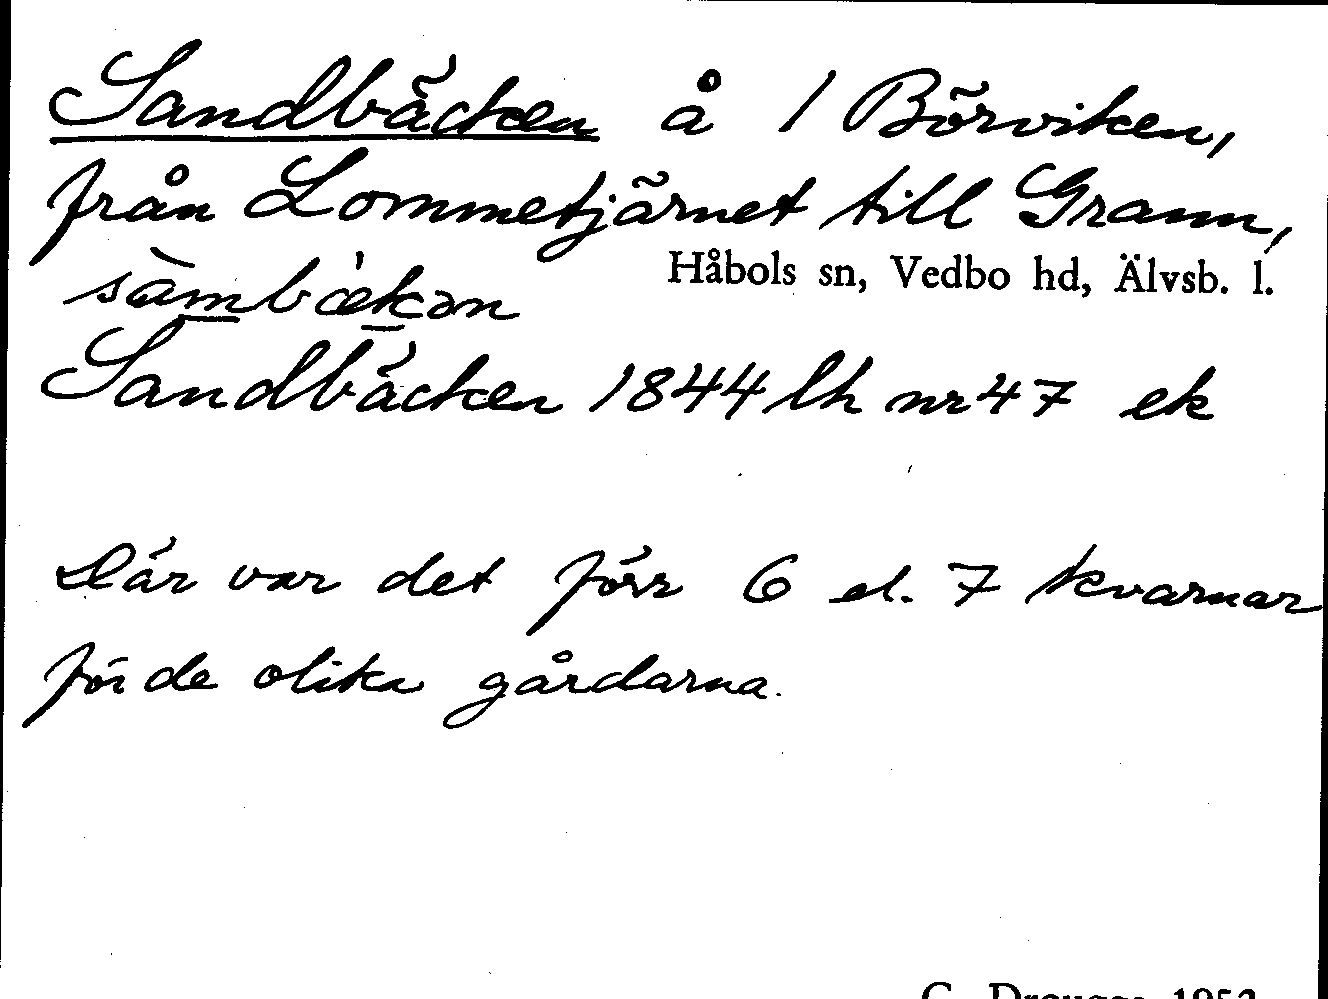 Sandbäcken å 1 Börviken,
från Lommetjärnet till Grann,
sàmbǽkən
Håbols sn, Vedbo hd, Älvsb. l.
Sandbäcken 1844 lh nr 47 ek
Där var det förr 6 el. 7 kvarnar
för de olika gårdarna.